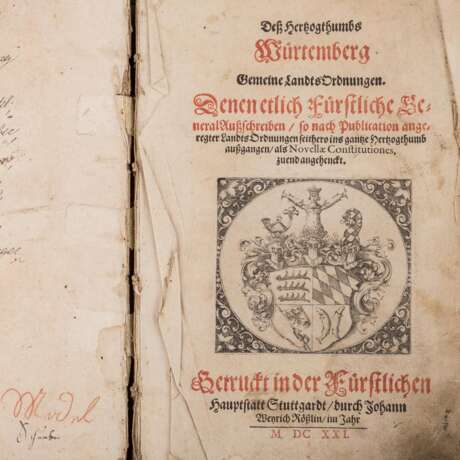 Deß Hertzogthumbs
Würtemberg
Gemeine LandtsOrdnungen.
Denen etlich Fürstliche Ge-
neral Außschreiben / so nach Publication ange-
regter Landts Ordnungen seithero ins gantze Hertzogthumb
außgangen / als Novellæ Constitutiones,
zu end angehenckt.
Getruckt in der Fürstlichen
Hauptstatt Stuttgardt / durch Johann
Weyrich Rößlin / im Jahr
M DC XXI.